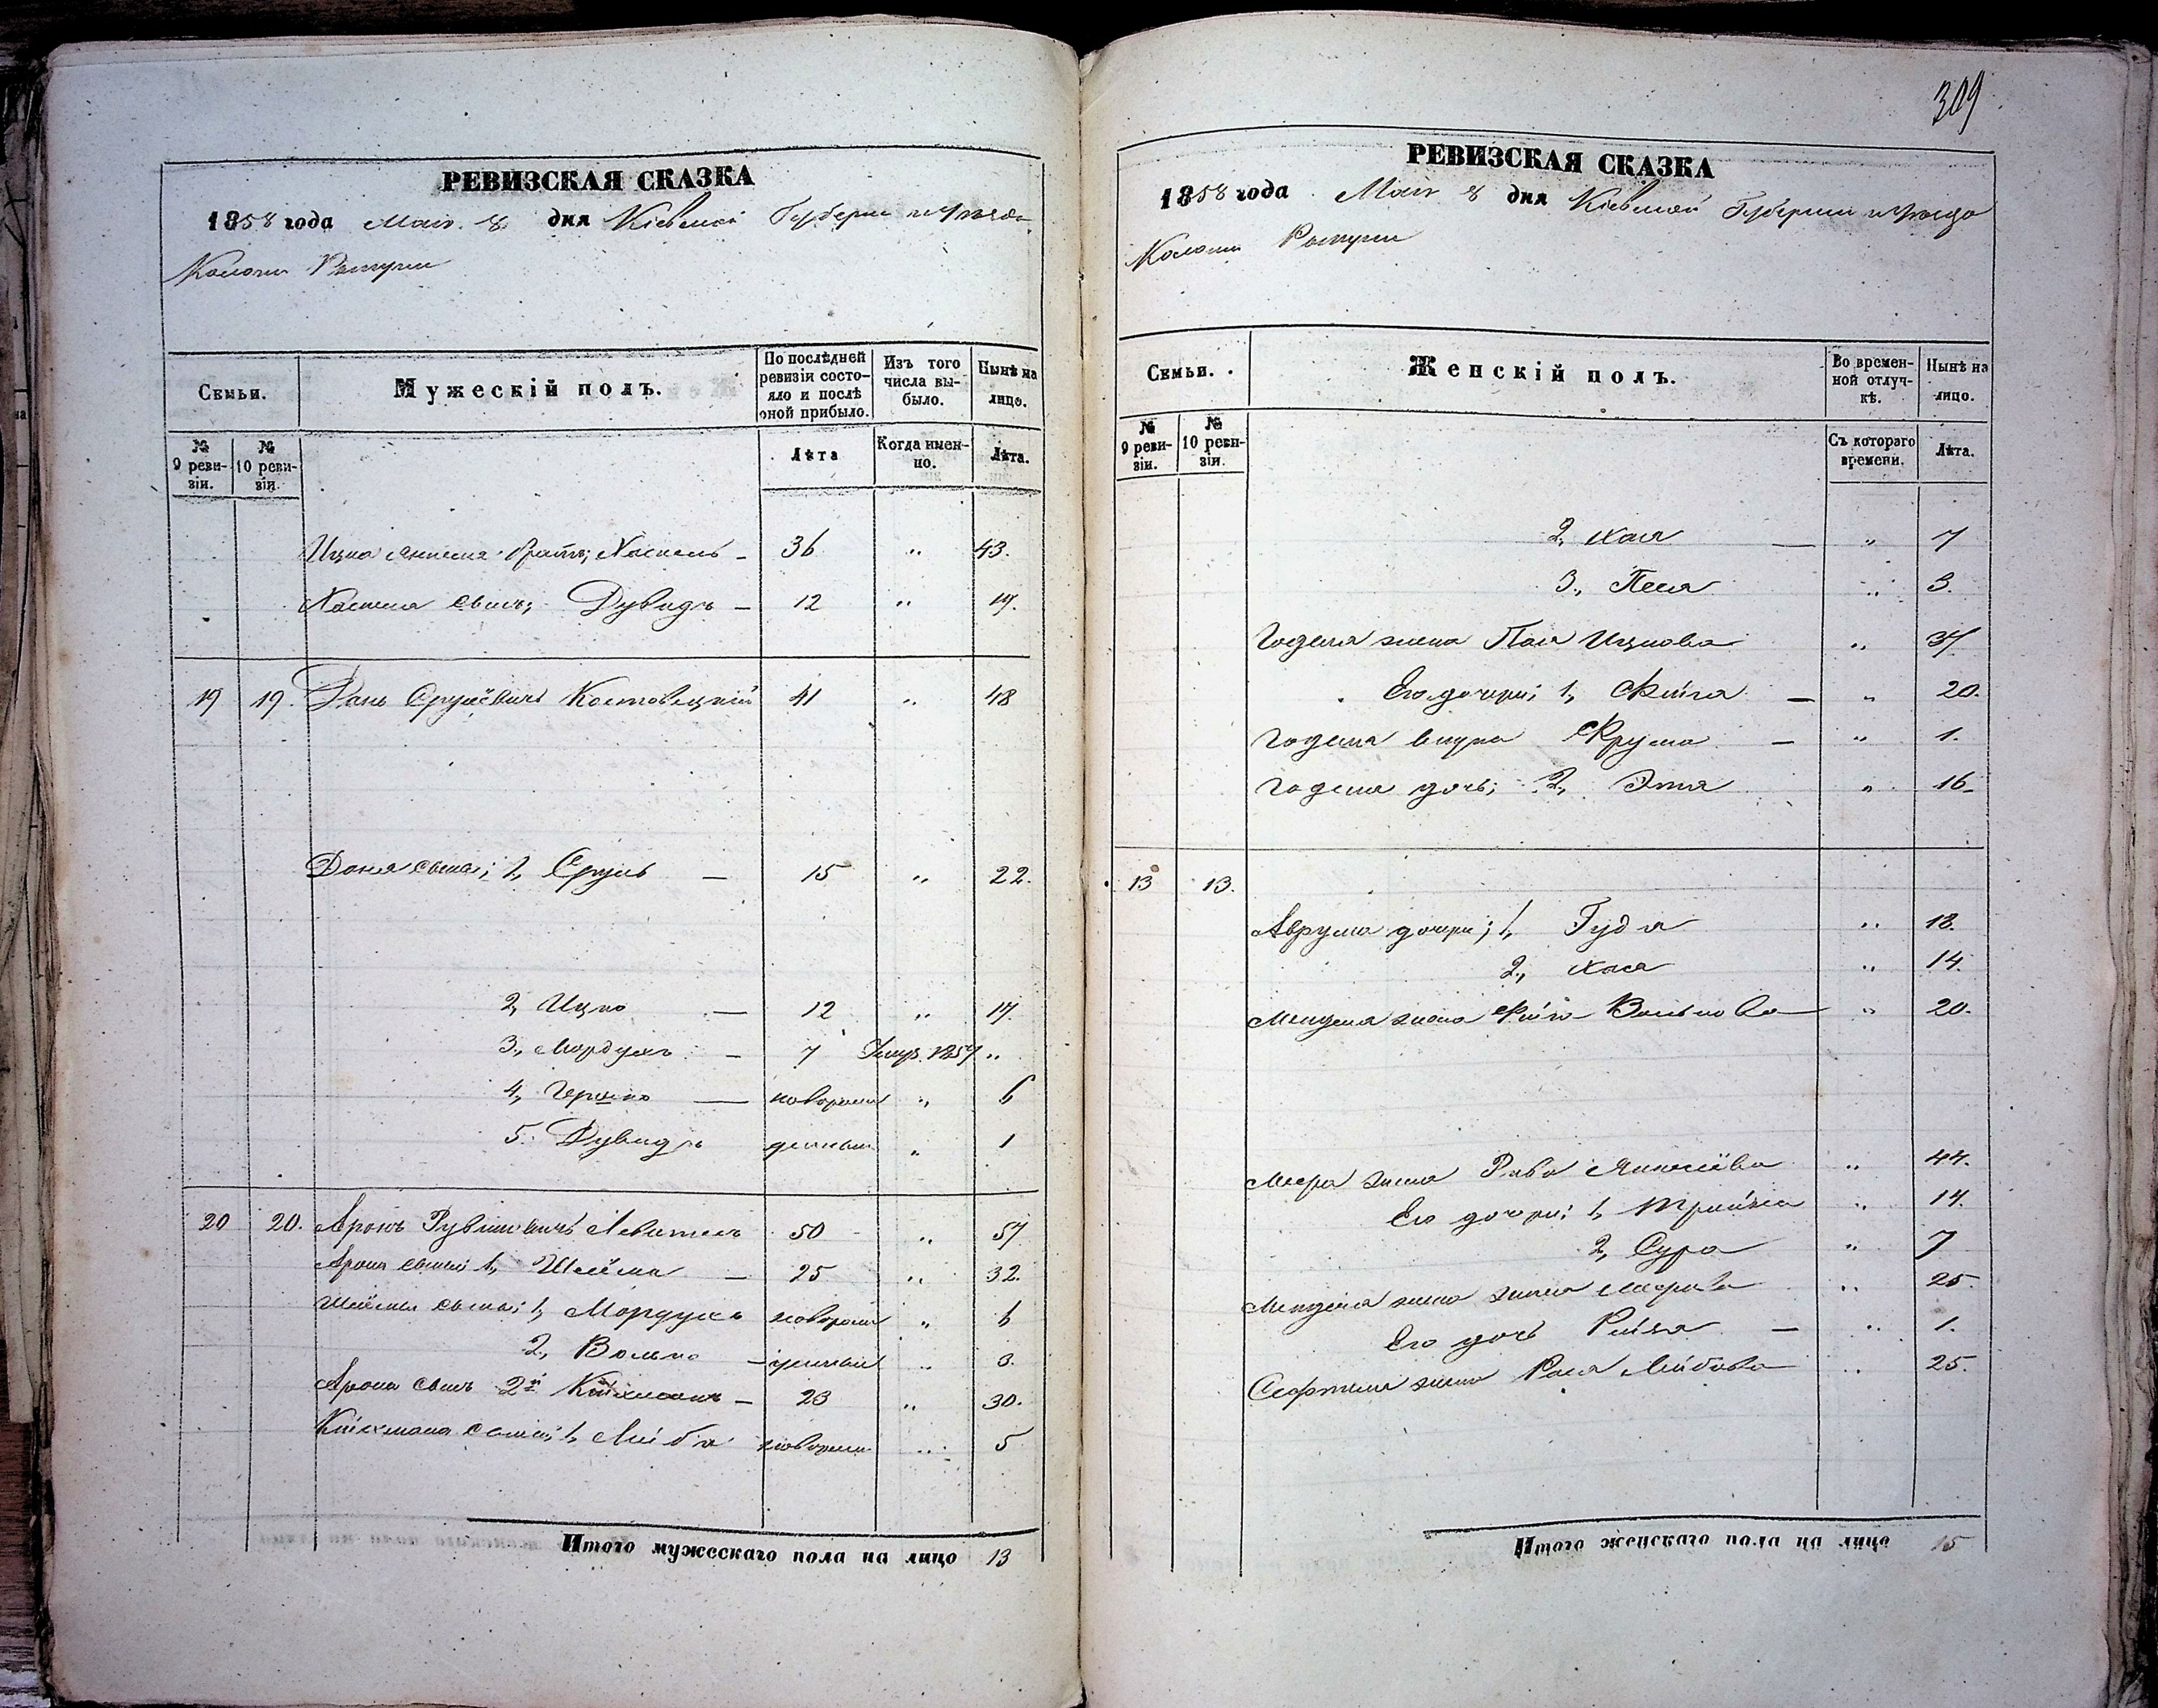 309
РЕВИЗСКАЯ СКАЗКА
1858 года Мая 8 дня Кіевской Губерніи и Уѣзда
Колоніи Ротуги
Семьи.
Мужескій полъ.
По послѣдней ревизіи состояло и послѣ оной прибыло.
Изъ того числа выбыло.
Нынѣ на лицо.
№ 9 ревизіи.
№ 10 ревизіи
Лѣта
Когда именно.
Лѣта.
Ицка Янкеля братъ; Хаскель — 36 „ 43.
Хаскеля сынъ; Дувидъ — 12 „ 19.
19 19. Дань Срулёвичъ 41 „ 48
Даня сыны; 1, Сруль — 15 „ 22.
2, Ицко — 12 „ 19.
3, Мордухъ — 7 Умер. 1857 „
4, Гершко — новорож „ 6
5. Дувидъ денные „ 1
20 20. Аронъ Рувиновичъ 50 „ 57
Арона сыны 1, Шлёма — 25 „ 32.
Шлёмы сыны; 1, Мордухъ новорож „ 6
2, Волько — денные „ 3.
Арона сынъ 2й — 23 „ 30.
сыны; 1, Лейба новорож „ 5
Итого мужескаго пола на лицо 13
РЕВИЗСКАЯ СКАЗКА
1858 года Мая 8 дня Кіевской Губерніи и Уѣзда
Колоніи Ротуги
Семьи.
Женскій полъ.
Во временной отлучкѣ.
Нынѣ на лицо.
№ 9 ревизіи.
№ 10 ревизіи.
Съ котораго времени.
Лѣта.
2, Хая — „ 7
3, Песя „ 3.
Годеля жена Ицкова „ 37
Его дочери; 1, Фейга — „ 20.
Годеля внука Фрума — „ 1.
Годеля дочь; 2, Этя „ 16
13 13.
Аврума дочери; 1, Гудя „ 18.
2, Хая „ 14.
Менделя жена Фейга Волькова „ 20.
Меера жена Рива Янкелёва „ 44.
Его дочери; 1, Трейна „ 14.
2, Сура „ 7
Менделя жена „ 25.
Его дочь Рейза — „ 1.
жена Рася Лейбова „ 25.
Итого женскаго пола на лицо 15